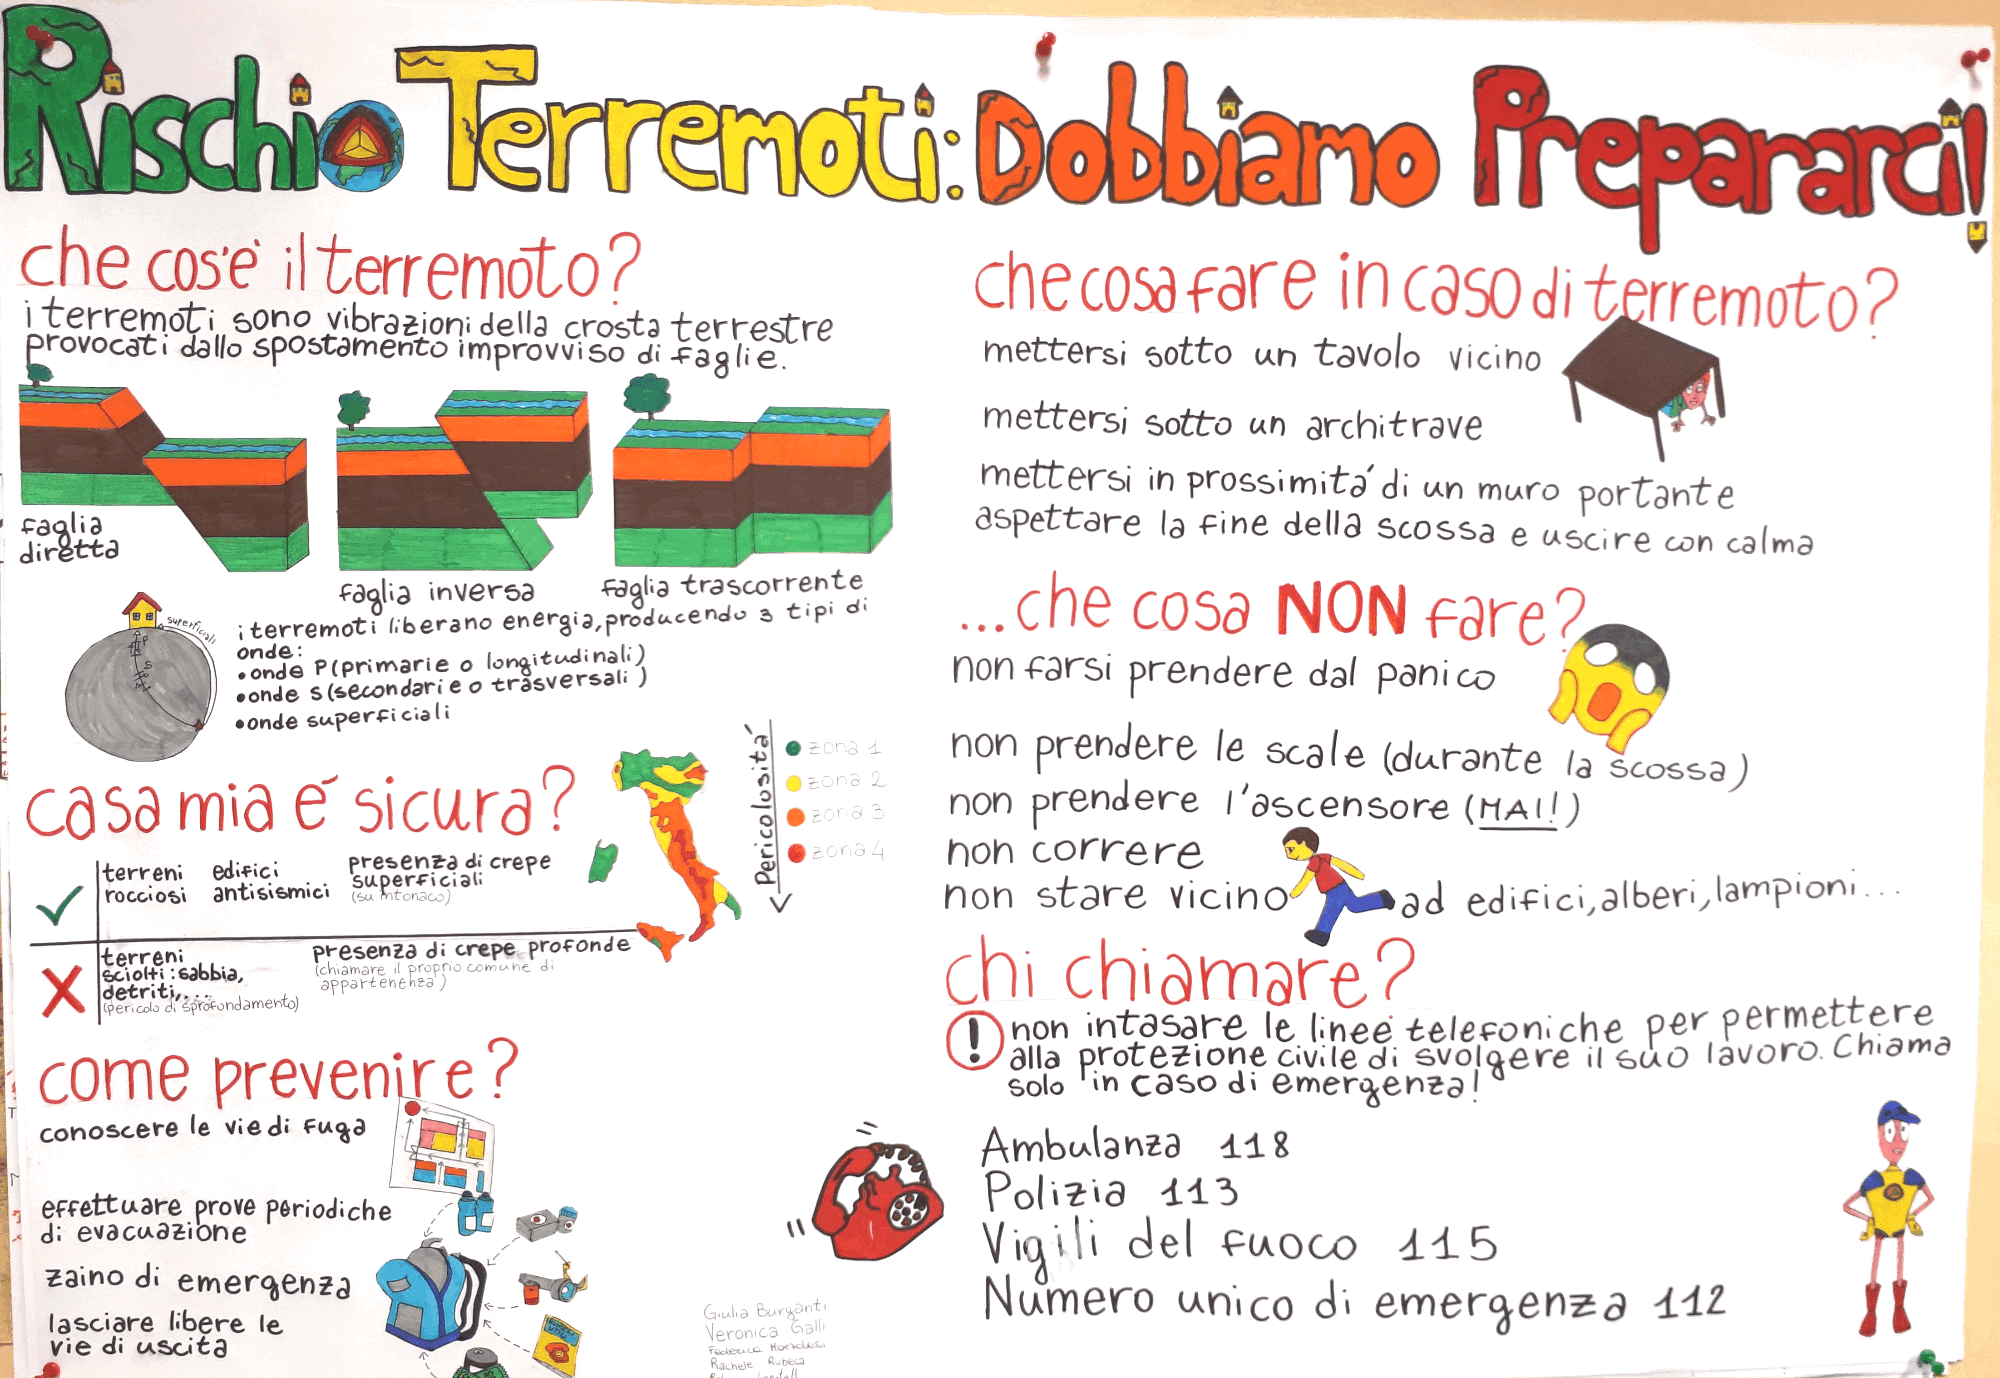 Rischio Terremoti: Dobbiamo Prepararci!
che cos'è il terremoto?
i terremoti sono vibrazioni della crosta terrestre
provocati dallo spostamento improvviso di faglie.
faglia
diretta
faglia inversa
faglia trascorrente
superficiali
P
S
i terremoti liberano energia, producendo 3 tipi di
onde:
•onde P (primarie o longitudinali)
•onde S (secondarie o trasversali)
•onde superficiali
casa mia é sicura?
terreni
rocciosi
edifici
antisismici
presenza di crepe
superficiali
(su intonaco)
terreni
sciolti: sabbia,
detriti,...
(pericolo di sprofondamento)
presenza di crepe profonde
(chiamare il proprio comune di
appartenenza)
Pericolositá
zona 1
zona 2
zona 3
zona 4
come prevenire?
conoscere le vie di fuga
effettuare prove periodiche
di evacuazione
zaino di emergenza
lasciare libere le
vie di uscita
Giulia Burganti
Veronica Galli
Federica
Rachele Rubeca
che cosa fare in caso di terremoto?
mettersi sotto un tavolo vicino
mettersi sotto un architrave
mettersi in prossimitá di un muro portante
aspettare la fine della scossa e uscire con calma
...che cosa NON fare?
non farsi prendere dal panico
non prendere le scale (durante la scossa)
non prendere l'ascensore (MAI!)
non correre
non stare vicino ad edifici, alberi, lampioni...
chi chiamare?
! non intasare le linee telefoniche per permettere
alla protezione civile di svolgere il suo lavoro. Chiama
solo in caso di emergenza!
Ambulanza 118
Polizia 113
Vigili del fuoco 115
Numero unico di emergenza 112